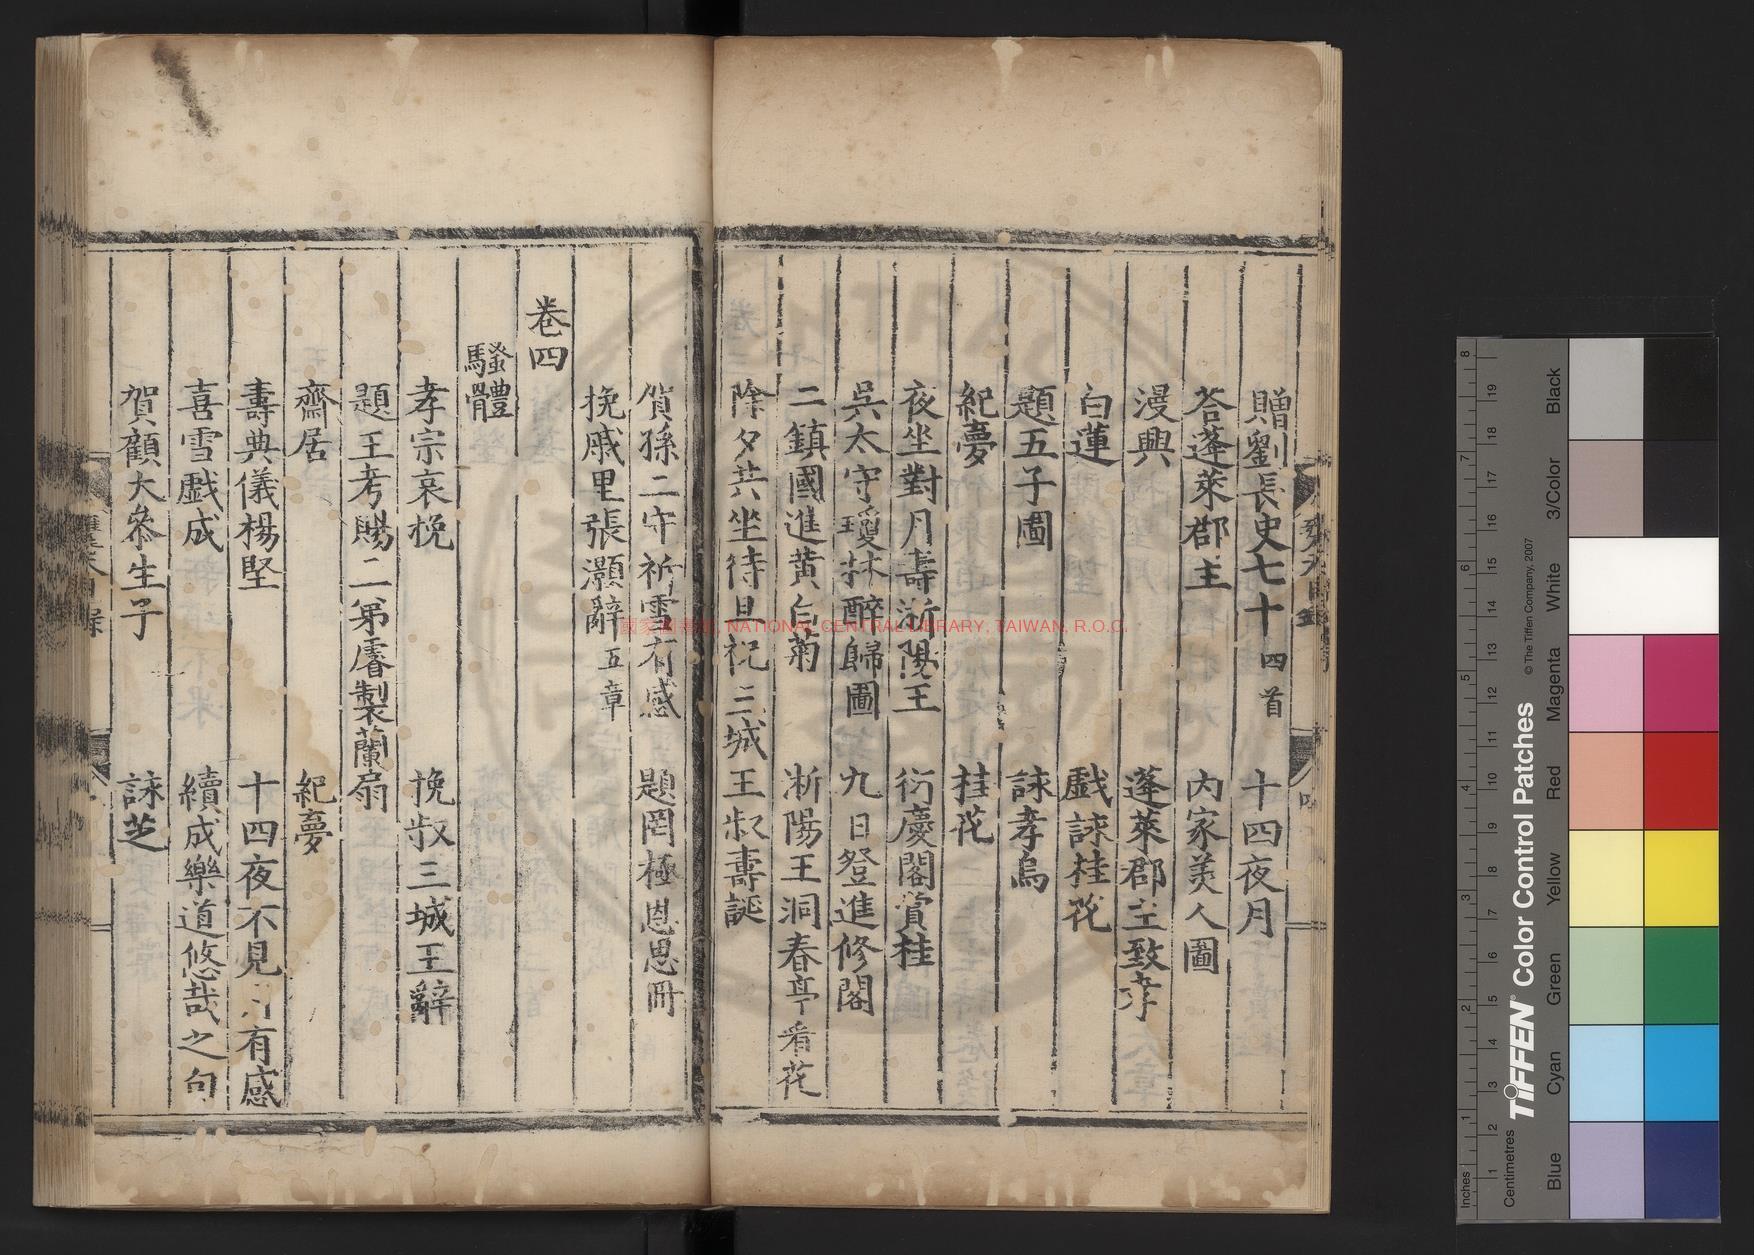 贈劉長史七十四首　十四夜月
荅蓬萊郡主　內家美人圖
漫興　蓬萊郡主致孝
白蓮　戲詠桂花
題五子圖　詠孝烏
紀夢　桂花
夜坐對月壽淅陽王　衍慶閣賞桂
吳太守瓊林醉歸圖　九日登進修閣
二鎮國進黃白菊　淅陽王洞春亭看花
除夕共坐待旦祝三城王叔壽誕
賀孫二守祈雪有感　題罔極恩思冊
挽戚里張灝辭五章
卷四
騷體
孝宗哀挽　挽叔三城王辭
題王考賜二弟睿製蘭扇
齋居　紀夢
壽典儀楊堅　十四夜不見月有感
喜雪戲成　續成樂道悠哉之句
賀顧大參生子　詠芝
國家圖書館, NATIONAL CENTRAL LIBRARY, TAIWAN, R.O.C.
TIFFEN® Color Control Patches
© The Tiffen Company, 2007
Inches
Centimetres
Blue
Cyan
Green
Yellow
Red
Magenta
White
3/Color
Black